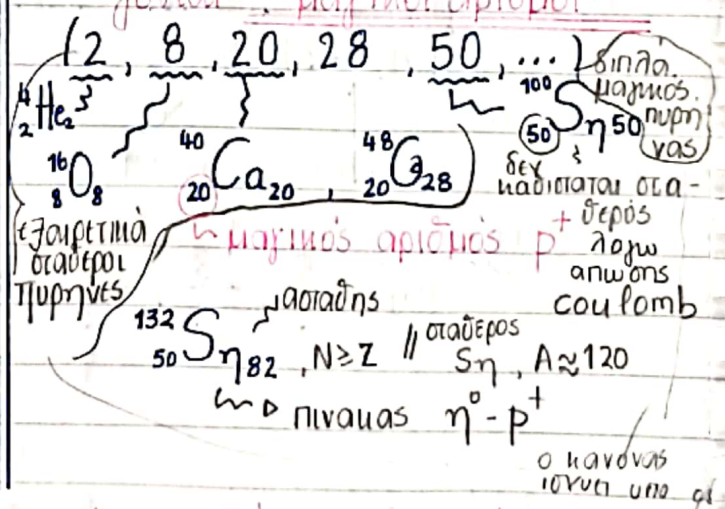 μαγικοί αριθμοί
(2, 8, 20, 28, 50, ...)
διπλα
μαγικός
πυρή
νας
⁴₂He₂
¹⁶₈O₈
⁴⁰₂₀Ca₂₀, ⁴⁸₂₀Ca₂₈
¹⁰⁰₅₀Sη⁵⁰
δεν
καθίσταται στα-
θερός
λόγω
απωσης
coulomb
εξαιρετικά
σταθεροί
πυρήνες
μαγικός αριθμός p⁺
ασταθής
¹³²₅₀Sη₈₂, N≥Z // σταθερος
Sη, A≈120
πινακας η⁰-p⁺
ο κανόνας
ισχυει υπο